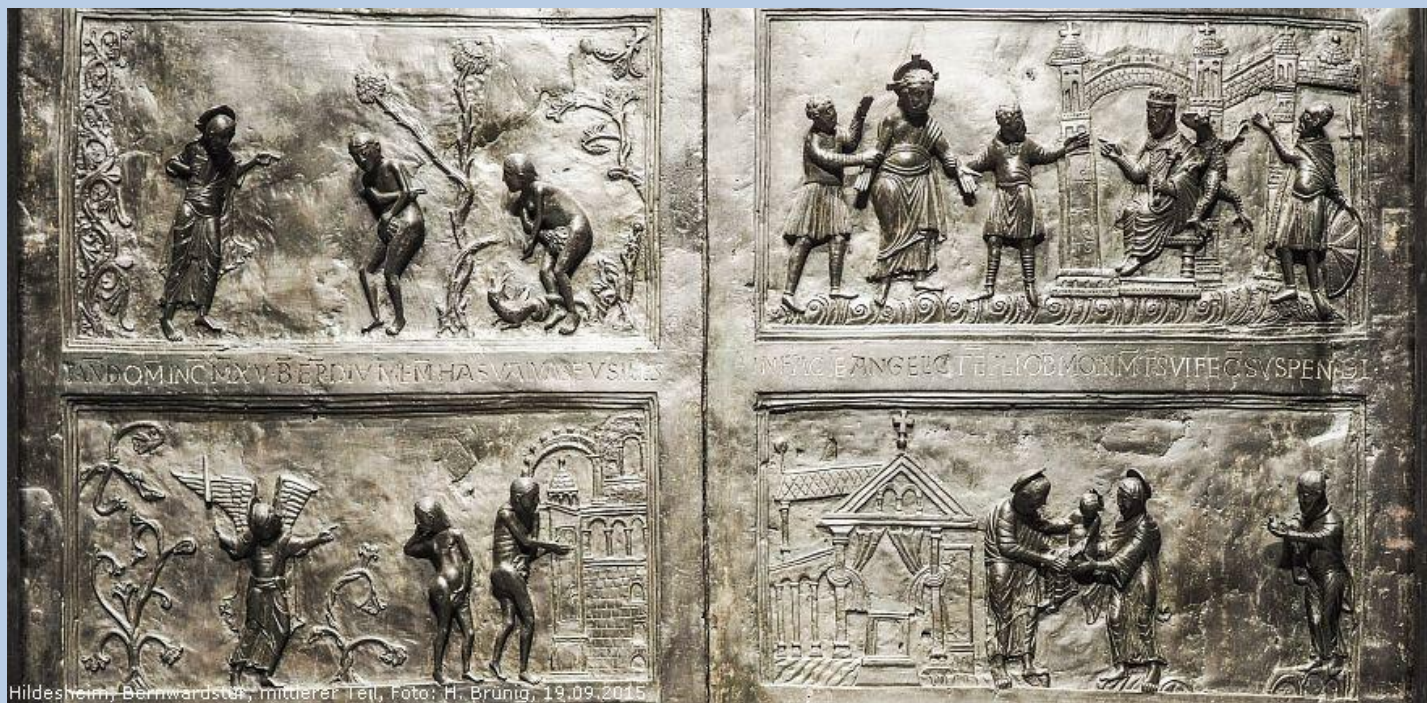 AN DOM INC MXV B EP DIV MEM HAS VALVAS FVSILES IN FACIE ANGELICI TEPLI OB MONIMT SVI FEC SVSPENDI
Hildesheim, Bernwardstür, mittlerer Teil, Foto: H. Brünig, 19.09.2015